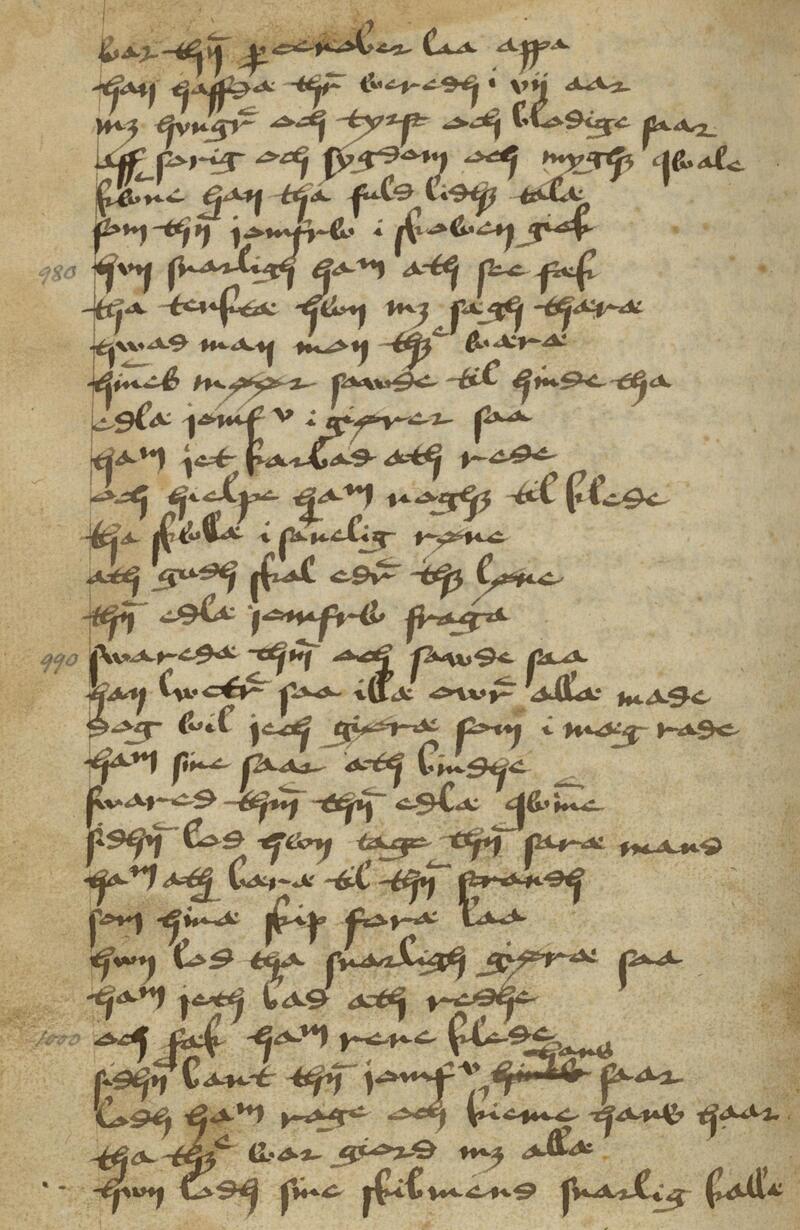 war thn̄ p̄ cenober laa appa
han haffdæ thr̄ weredh i vij aar
mʒ hvngr̄ och tyrst och blodige saar
aff sorig och sygdom och myghʒ qwale
kwne han tha fuld lidhʒ talæ
som thn̄ jomfrw i skowen gick
980 hvn snarligh ham ath see fæk
tha tenktæ hwn mʒ sægh thæræ
hwad man mon thʒe wæræ
hin̄es møør sawde til hinde tha
edlæ jomfv i giører saa
ham jet karbad ath rede
och hielpe ham noghʒ til klede
tha skwllæ i san̄elig røne
ath gudh skal edr̄ thʒ løne
thn̄ edlæ jomfrw fraga
990 swaredæ thm̄ och sawde saa
han lwctr̄ saa illæ owr̄ allæ made
dog wil jech giøræ som i mæg rade
ham sine saar ath bindhe
swared thm̄ thn̄ edlæ qwin̄e
sidhn̄ lod hwn tage thn̄ saræ mand
ham ath bæræ til thn̄ strandh
som hin̄æ skip foræ laa
hwn lod tha snarligh giøræ saa
ham jeth bad ath redhe
1000 och fæk ham rene klede
sidhn̄ bant thn̄ jomfv hans saar
lodh ham rage och kieme hans haar
tha thʒe war giord mʒ allæ
hwn lodh sine skibmend snarlig kallæ